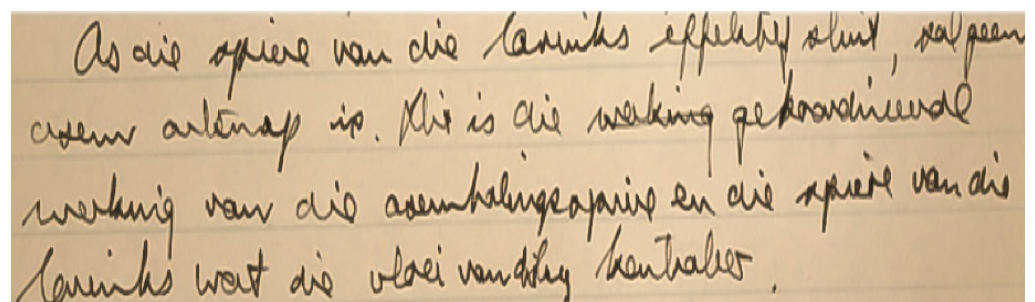 As die spiere van die larinks effektief sluit, sal geen
asem ontsnap nie. Dit is die werking gekoördineerde
werking van die asemhalingspiere en die spiere van die
larinks wat die vloei van lug kontroleer.